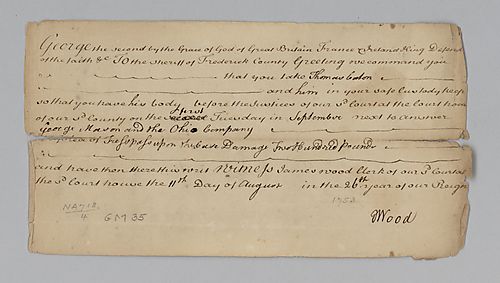 George the second by the Grace of God of Great Britain France & Ireland King Defend
of the faith &c To the Sheriff of Frederick County Greeting we command you
that you take Thomas Eaton
and him in your safe Custody keep
so that you have his body before the Justices of our Sd Court at the Court house
first
of our Sd County on the Tuesday in September next to answer
George Mason and the Ohio Company
of a plea of Trespass upon the Case Damage Two Hundred Pound
and have then there this writ Witness James Wood Clerk of our Sd Court at
the Sd Court house the 11th Day of August in the 26th year of our Reign
1752
NA718.
4
GM 35
JWood